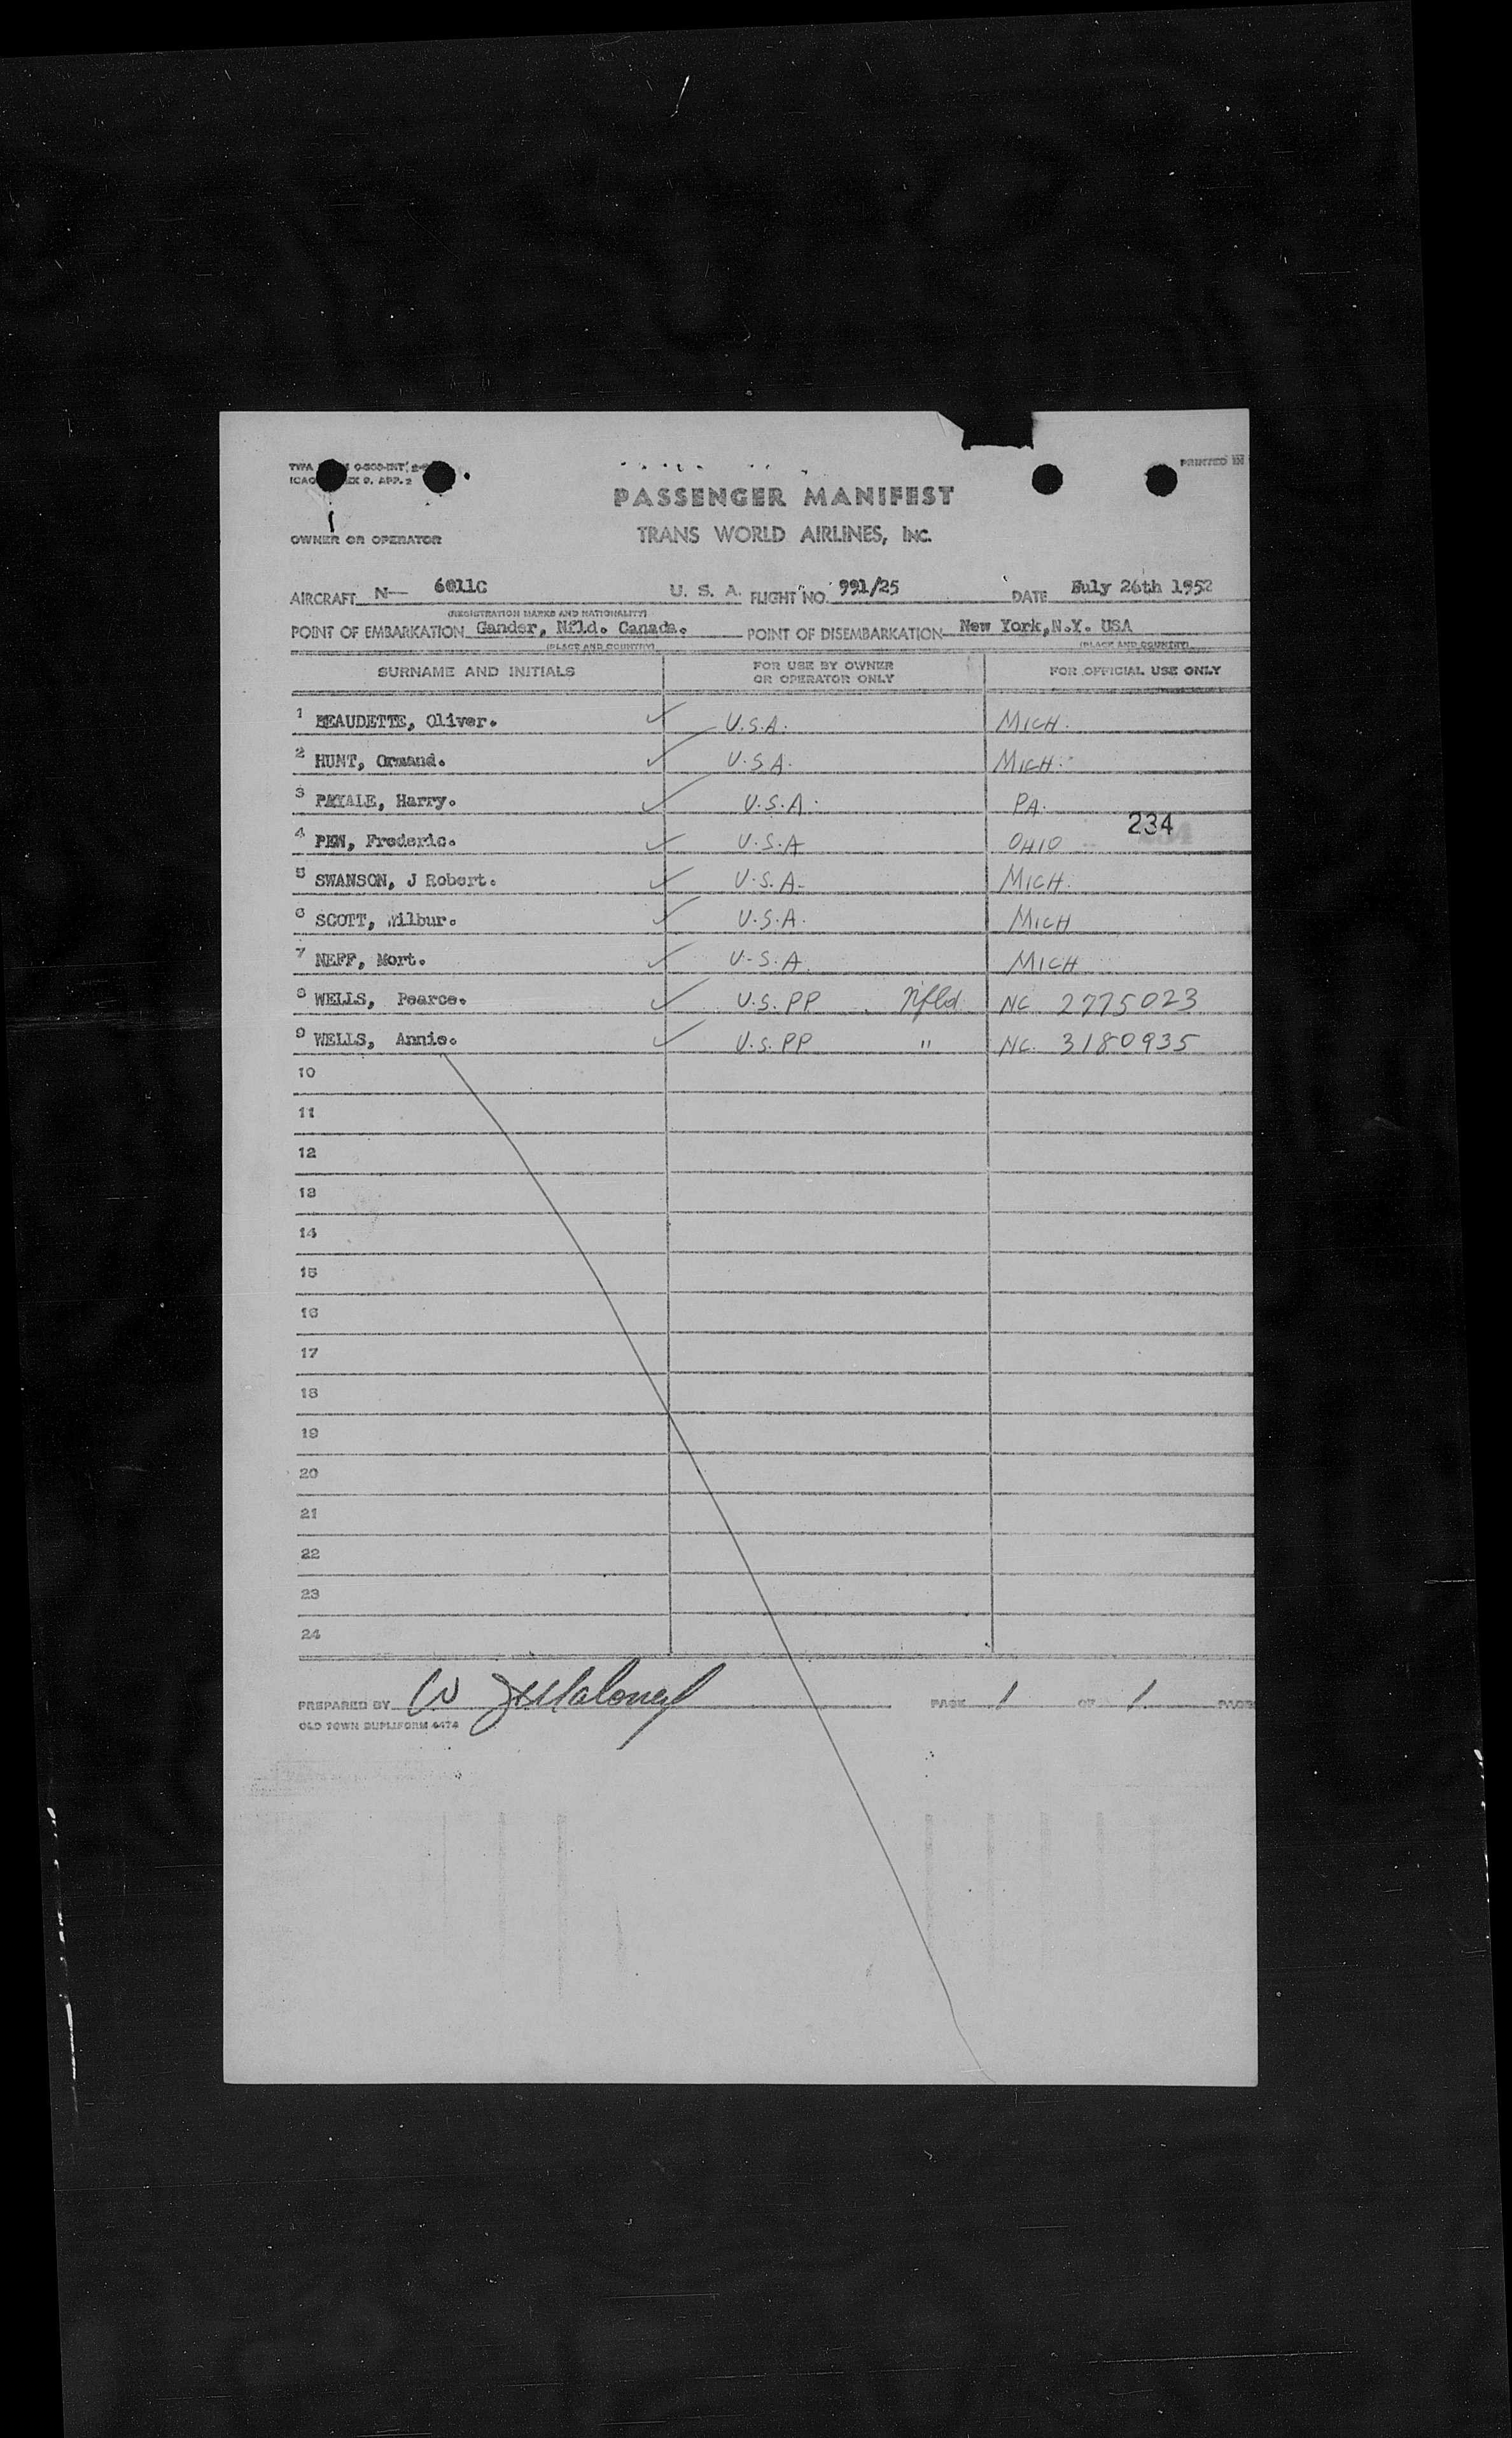 ICAO
PRINTED IN
PASSENGER MANIFEST
OWNER OR OPERATOR
TRANS WORLD AIRLINES, INC.
AIRCRAFT N— 6011C U. S. A. FLIGHT NO. 991/25 DATE July 26th 1952
(REGISTRATION MARKS AND NATIONALITY)
POINT OF EMBARKATION Gander, Nfld. Canada. POINT OF DISEMBARKATION New York,N.Y. USA
(PLACE AND COUNTRY) (PLACE AND COUNTRY)
SURNAME AND INITIALS FOR USE BY OWNER OR OPERATOR ONLY FOR OFFICIAL USE ONLY
1 BEAUDETTE, Oliver. ✓ U.S.A. MICH.
2 HUNT, Ormand. ✓ U.S.A. MICH.
3 Harry. ✓ U.S.A. PA.
234
4 PEW, Frederic. ✓ U.S.A OHIO
5 SWANSON, J Robert. ✓ U.S.A. MICH.
6 SCOTT, Wilbur. ✓ U.S.A. MICH
7 NEFF, Mort. ✓ U.S.A. MICH
8 WELLS, Pearce. ✓ U.S. PP Nfld NC 2775023
9 WELLS, Annie. ✓ U.S. PP " NC. 3180935
10
11
12
13
14
15
16
17
18
19
20
21
22
23
24
PREPARED BY W J Maloney PAGE 1 OF 1 PAGES
OLD TOWN DUPLIFORM 4474